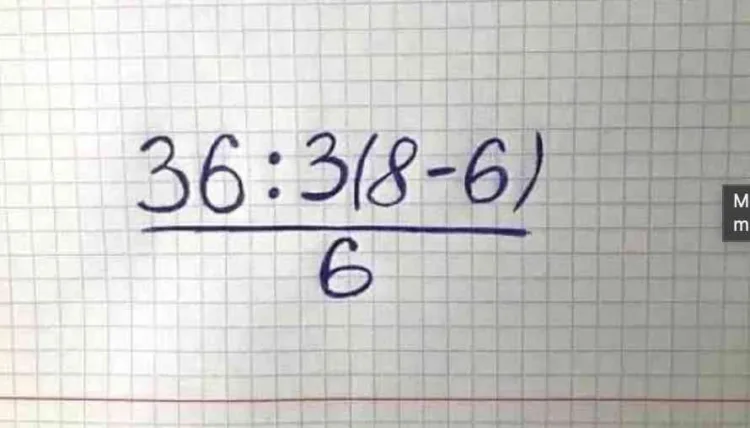 36:3(8-6)
6
M
m